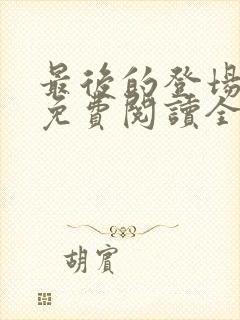 最後的登場
免費閱讀全
胡賓